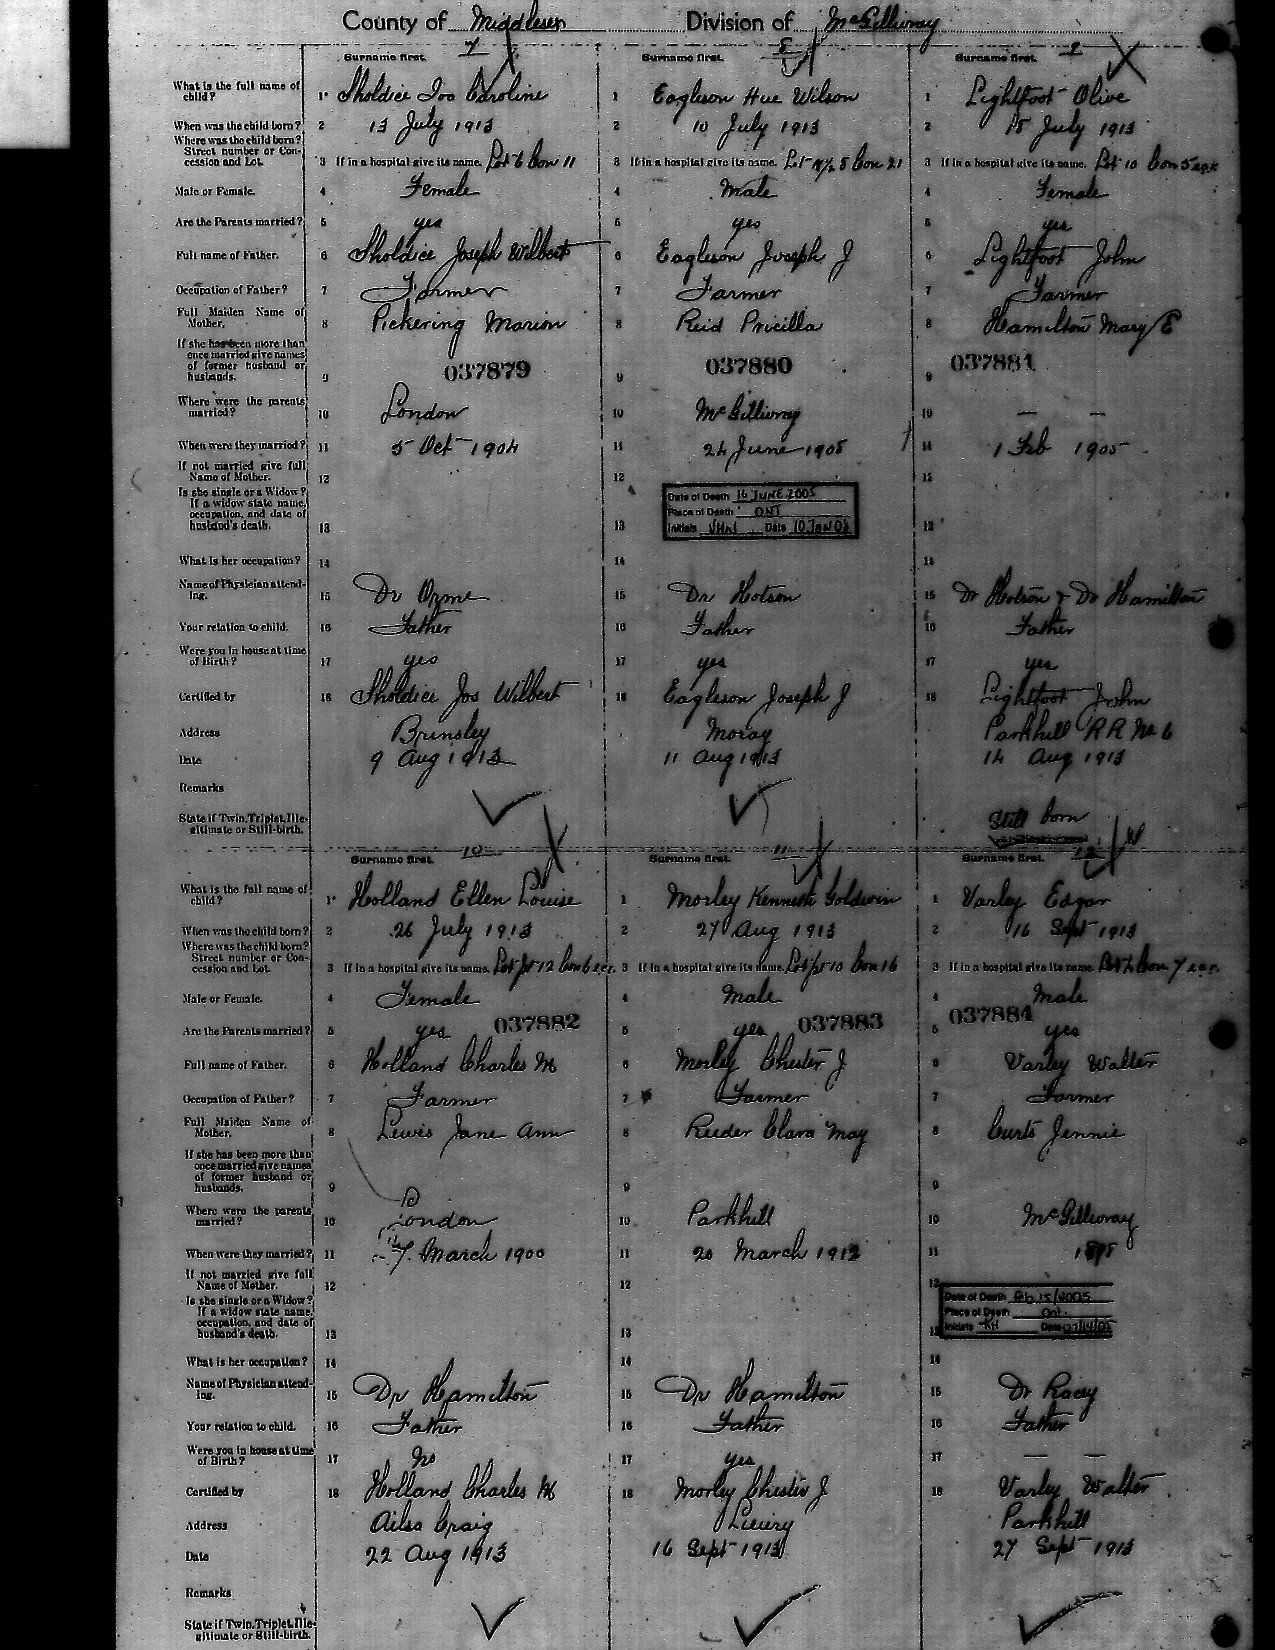 County of Middlesex Division of McGillivray
7 8 9
Surname first. Surname first. Surname first.
What is the full name of child? 1 Sholdice Iva Caroline 1 Eagleson Hue Wilson 1 Lightfoot Olive
When was the child born? 2 13 July 1913 2 10 July 1913 2 15 July 1913
Where was the child born? Street number or Concession and Lot. 3 If in a hospital give its name. Lot 6 Con 11 3 If in a hospital give its name. Lot N½ 8 Con 21 3 If in a hospital give its name. Lot 10 Con 5
Male or Female. 4 Female 4 Male 4 Female
Are the Parents married? 5 yes 5 yes 5 yes
Full name of Father. 6 Sholdice Joseph Wilbert 6 Eagleson Joseph J 6 Lightfoot John
Occupation of Father? 7 Farmer 7 Farmer 7 Farmer
Full Maiden Name of Mother. 8 Pickering Marion 8 Reid Pricilla 8 Hamilton Mary E
If she has been more than once married give names of former husband or husbands. 9 037879 9 037880 9 037881
Where were the parents married? 10 London 10 McGillivray 10 — —
When were they married? 11 5 Oct 1904 11 24 June 1908 11 1 Feb 1905
If not married give full Name of Mother. 12 12 12
Is she single or a Widow? If a widow state name, occupation, and date of husband's death. 13 13 13
Date of Death 16 JUNE 2005
Place of Death ONT
Initials Date 10 JAN 06
What is her occupation? 14 14 14
Name of Physician attending. 15 Dr Orme 15 Dr Hotson 15 Dr Hotson & Dr Hamilton
Your relation to child. 16 Father 16 Father 16 Father
Were you in house at time of Birth? 17 yes 17 yes 17 yes
Certified by 18 Sholdice Jos Wilbert 18 Eagleson Joseph J 18 Lightfoot John
Address Brinsley Moray Parkhill RR No 6
Date 9 Aug 1913 11 Aug 1913 14 Aug 1913
Remarks
State if Twin, Triplet, Illegitimate or Still-birth. Still born
10 11 12
Surname first. Surname first. Surname first.
What is the full name of child? 1 Holland Ellen Louise 1 Morley Kenneth Goldwin 1 Varley Edgar
When was the child born? 2 26 July 1913 2 27 Aug 1913 2 16 Sept 1913
Where was the child born? Street number or Concession and Lot. 3 If in a hospital give its name. Lot pt 12 Con 6 ecr. 3 If in a hospital give its name. Lot pt 10 Con 16 3 If in a hospital give its name. Con 7 ecr.
Male or Female. 4 Female 4 Male 4 Male
037882 037883 037884
Are the Parents married? 5 yes 5 yes 5 yes
Full name of Father. 6 Holland Charles M 6 Morley Chester J 6 Varley Walter
Occupation of Father? 7 Farmer 7 Farmer 7 Farmer
Full Maiden Name of Mother. 8 Lewis Jane Ann 8 Reeder Clara May 8 Curts Jennie
If she has been more than once married give names of former husband or husbands. 9 9 9
Where were the parents married? 10 London 10 Parkhill 10 McGillivray
When were they married? 11 7 March 1900 11 20 March 1912 11 1898
If not married give full Name of Mother. 12 12 12
Is she single or a Widow? If a widow state name, occupation, and date of husband's death. 13 13 13
Date of Death Feb 15/2005
Place of Death Ont.
Initials KH Date
What is her occupation? 14 14 14
Name of Physician attending. 15 Dr Hamilton 15 Dr Hamilton 15 Dr Racey
Your relation to child. 16 Father 16 Father 16 Father
Were you in house at time of Birth? 17 No 17 yes 17 — —
Certified by 18 Holland Charles M 18 Morley Chester J 18 Varley Walter
Address Ailsa Craig Lieury Parkhill
Date 22 Aug 1913 16 Sept 1913 27 Sept 1913
Remarks
State if Twin, Triplet, Illegitimate or Still-birth.